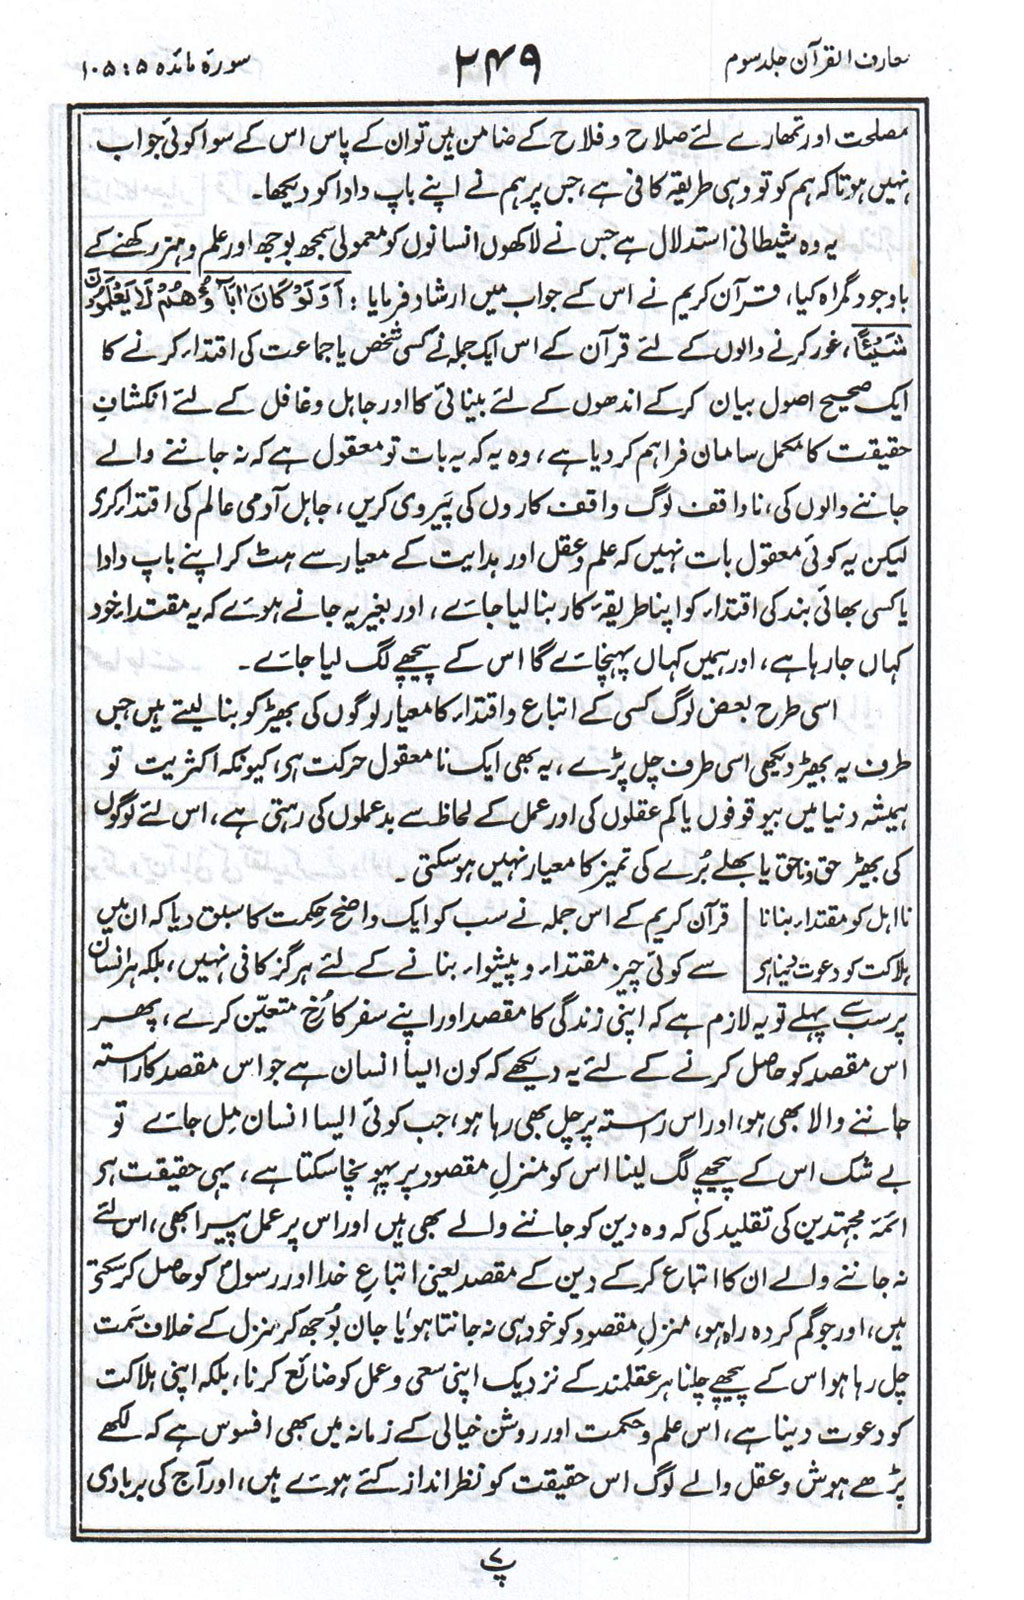 معارف القرآن جلد سوم
۲۴۹
سورۂ مائدہ ۵ : ۱۰۵
مصلحت اور تمھارے لئے صلاح و فلاح کے ضامن ہیں تو ان کے پاس اس کے سوا کوئی جواب
نہیں ہوتا کہ ہم کو تو وہی طریقہ کافی ہے، جس پر ہم نے اپنے باپ دادا کو دیکھا۔
یہ وہ شیطانی استدلال ہے جس نے لاکھوں انسانوں کو معمولی سمجھ بوجھ اور علم و ہنر رکھنے کے
باوجود گمراہ کیا، قرآن کریم نے اس کے جواب میں ارشاد فرمایا : اَوَلَوْ كَانَ اٰبَآؤُهُمْ لَا يَعْلَمُوْنَ
شَيْـًٔا، غور کرنے والوں کے لئے قرآن کے اس ایک جملہ نے کسی شخص یا جماعت کی اقتداء کرنے کا
ایک صحیح اصول بیان کرکے اندھوں کے لئے بینائی کا اور جاہل و غافل کے لئے انکشافِ
حقیقت کا مکمل سامان فراہم کر دیا ہے، وہ یہ کہ یہ بات تو معقول ہے کہ نہ جاننے والے
جاننے والوں کی، ناواقف لوگ واقف کاروں کی پَیروی کریں، جاہل آدمی عالم کی اقتداء کری
لیکن یہ کوئی معقول بات نہیں کہ علم و عقل اور ہدایت کے معیار سے ہٹ کر اپنے باپ دادا
یا کسی بھائی بند کی اقتداء کو اپنا طریقۂ کار بنا لیا جائے، اور بغیر یہ جانے ہوئے کہ یہ مقتداء خود
کہاں جا رہا ہے، اور ہمیں کہاں پہنچائے گا اس کے پیچھے لگ لیا جائے۔
اسی طرح بعض لوگ کسی کے اتباع و اقتداء کا معیار لوگوں کی بھیڑ کو بنا لیتے ہیں جس
طرف یہ بھیڑ دیکھی اسی طرف چل پڑے، یہ بھی ایک نامعقول حرکت ہے، کیونکہ اکثریت تو
ہمیشہ دنیا میں بیوقوفوں یا کم عقلوں کی اور عمل کے لحاظ سے بدعملوں کی رہتی ہے، اس لئے لوگوں
کی بھیڑ حق و ناحق یا بھلے بُرے کی تمیز کا معیار نہیں ہو سکتی۔
نااہل کو مقتداء بنانا
ہلاکت کو دعوت دینا ہے
قرآن کریم کے اس جملہ نے سب کو ایک واضح حکمت کا سبق دیا کہ ان میں
سے کوئی چیز مقتداء و پیشواء بنانے کے لئے ہرگز کافی نہیں، بلکہ ہر انسان
پر سب سے پہلے تو یہ لازم ہے کہ اپنی زندگی کا مقصد اور اپنے سفر کا رُخ متعیّن کرے، پھر
اس مقصد کو حاصل کرنے کے لئے یہ دیکھے کہ کون ایسا انسان ہے جو اس مقصد کا راستہ
جاننے والا بھی ہو، اور اس راستہ پر چل بھی رہا ہو، جب کوئی ایسا انسان مِل جائے تو
بے شک اس کے پیچھے لگ لینا اس کو منزلِ مقصود پر پہونچا سکتا ہے، یہی حقیقت ہے
ائمۂ مجتہدین کی تقلید کی کہ وہ دین کو جاننے والے بھی ہیں اور اس پر عمل پیرا بھی، اس لئے
نہ جاننے والے ان کا اتباع کرکے دین کے مقصد یعنی اتباعِ خدا اور رسولؐ کو حاصل کر سکتے
ہیں، اور جو گم کردہ راہ ہو، منزلِ مقصود کو خود ہی نہ جانتا ہو، یا جان بُوجھ کر منزل کے خلاف سَمت
چل رہا ہو اس کے پیچھے چلنا ہر عقلمند کے نزدیک اپنی سعی و عمل کو ضائع کرنا، بلکہ اپنی ہلاکت
کو دعوت دینا ہے، اس علم و حکمت اور روشن خیالی کے زمانہ میں بھی افسوس ہے کہ لکھے
پڑھے ہوش و عقل والے لوگ اس حقیقت کو نظر انداز کئے ہوئے ہیں، اور آج کی بربادی